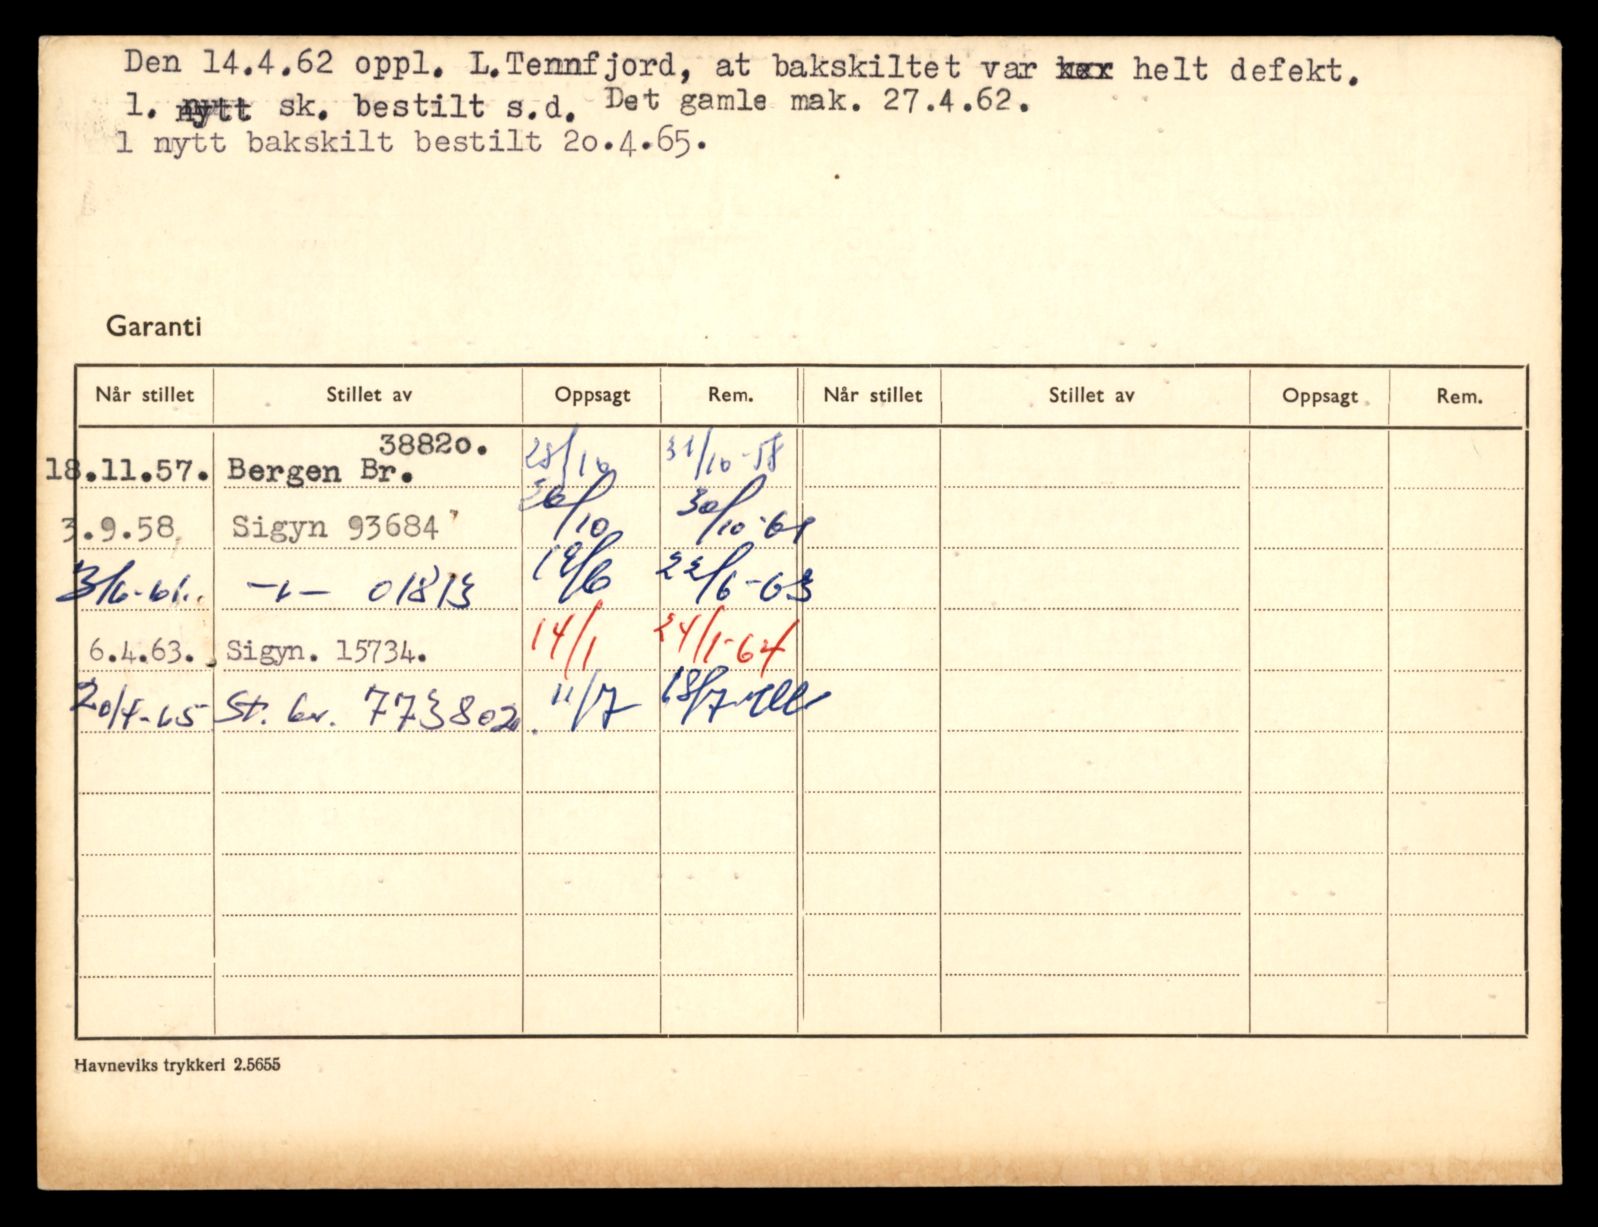 Den 14.4.62 oppl. L.Tennfjord, at bakskiltet var helt defekt.
1. nytt sk. bestilt s.d. Det gamle mak. 27.4.62.
1 nytt bakskilt bestilt 20.4.65.
Garanti
Når stillet Stillet av Oppsagt Rem. Når stillet Stillet av Oppsagt Rem.
18.11.57. Bergen Br. 38820. 28/10 31/10-58
3.9.58. Sigyn 93684 30/10 30/10-61
3/6-61. -"- 01813 19/6 22/6-63
6.4.63. Sigyn. 15734. 14/1 24/1-64
20/4-65 St. br. 773802. 11/7 18/7
Havneviks trykkeri 2.5655